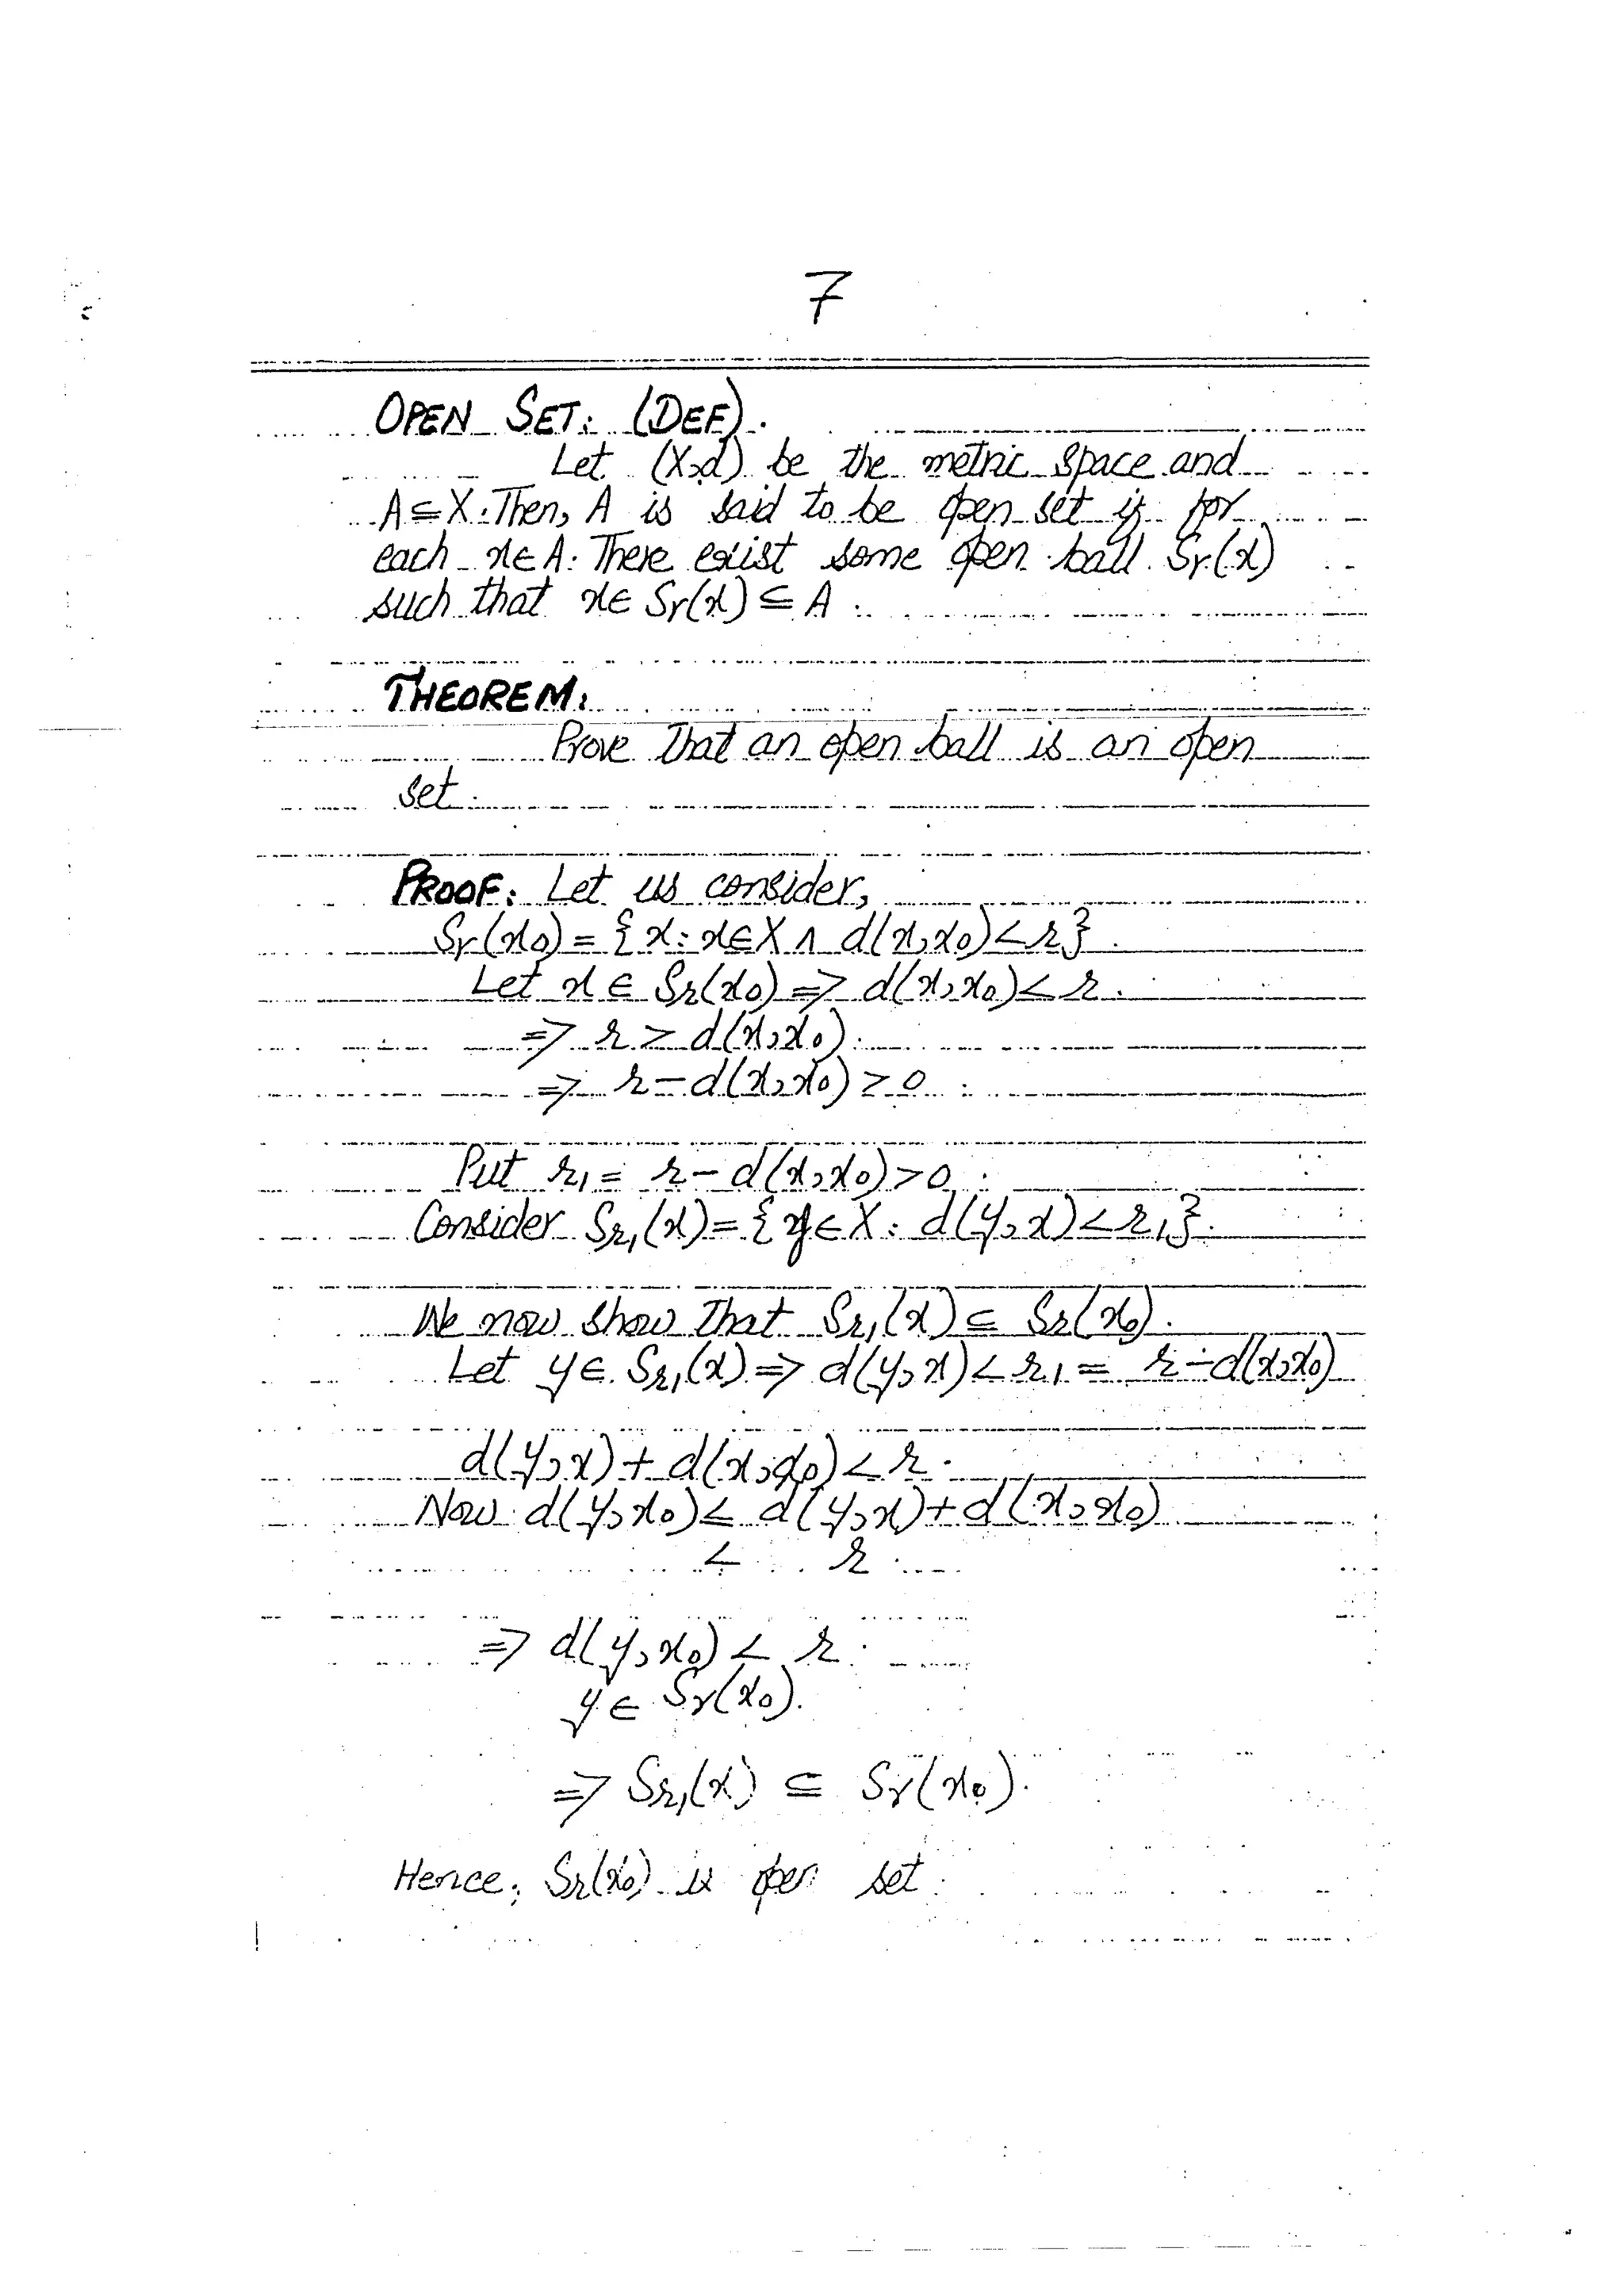 7
OPEN SET: (DEF).
Let (X,d) be the metric space and
A⊆X. Then, A is said to be open set if for
each x∈A. There exist some open ball Sr(x)
such that x∈ Sr(x) ⊆ A .
THEOREM:
Prove that an open ball is an open
set.
PROOF: Let us consider,
Sr(x₀) = {x : x∈X ∧ d(x,x₀)<r} .
Let x ∈ Sr(x₀) => d(x,x₀)< r .
=> r > d(x,x₀).
=> r - d(x,x₀) > 0 .
Put r₁ = r - d(x,x₀)>0 .
Consider Sr₁(x) = {y∈X : d(y,x)<r₁}.
We now show that Sr₁(x) ⊆ Sr(x₀).
Let y∈ Sr₁(x) => d(y,x)< r₁ = r - d(x,x₀)
d(y,x) + d(x,x₀)< r .
Now d(y,x₀)≤ d(y,x)+d(x,x₀)
< r .
=> d(y,x₀) < r .
y∈ Sr(x₀).
=> Sr₁(x) ⊆ Sr(x₀).
Hence, Sr(x₀) is open set .